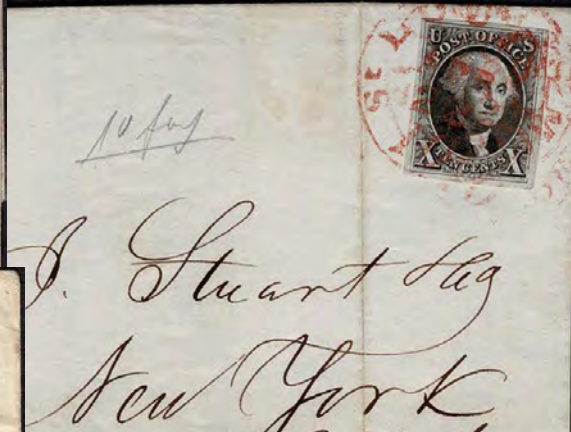 U S
POST OFFICE
X TEN CENTS X
St L
10
J. Stuart Esq
New York